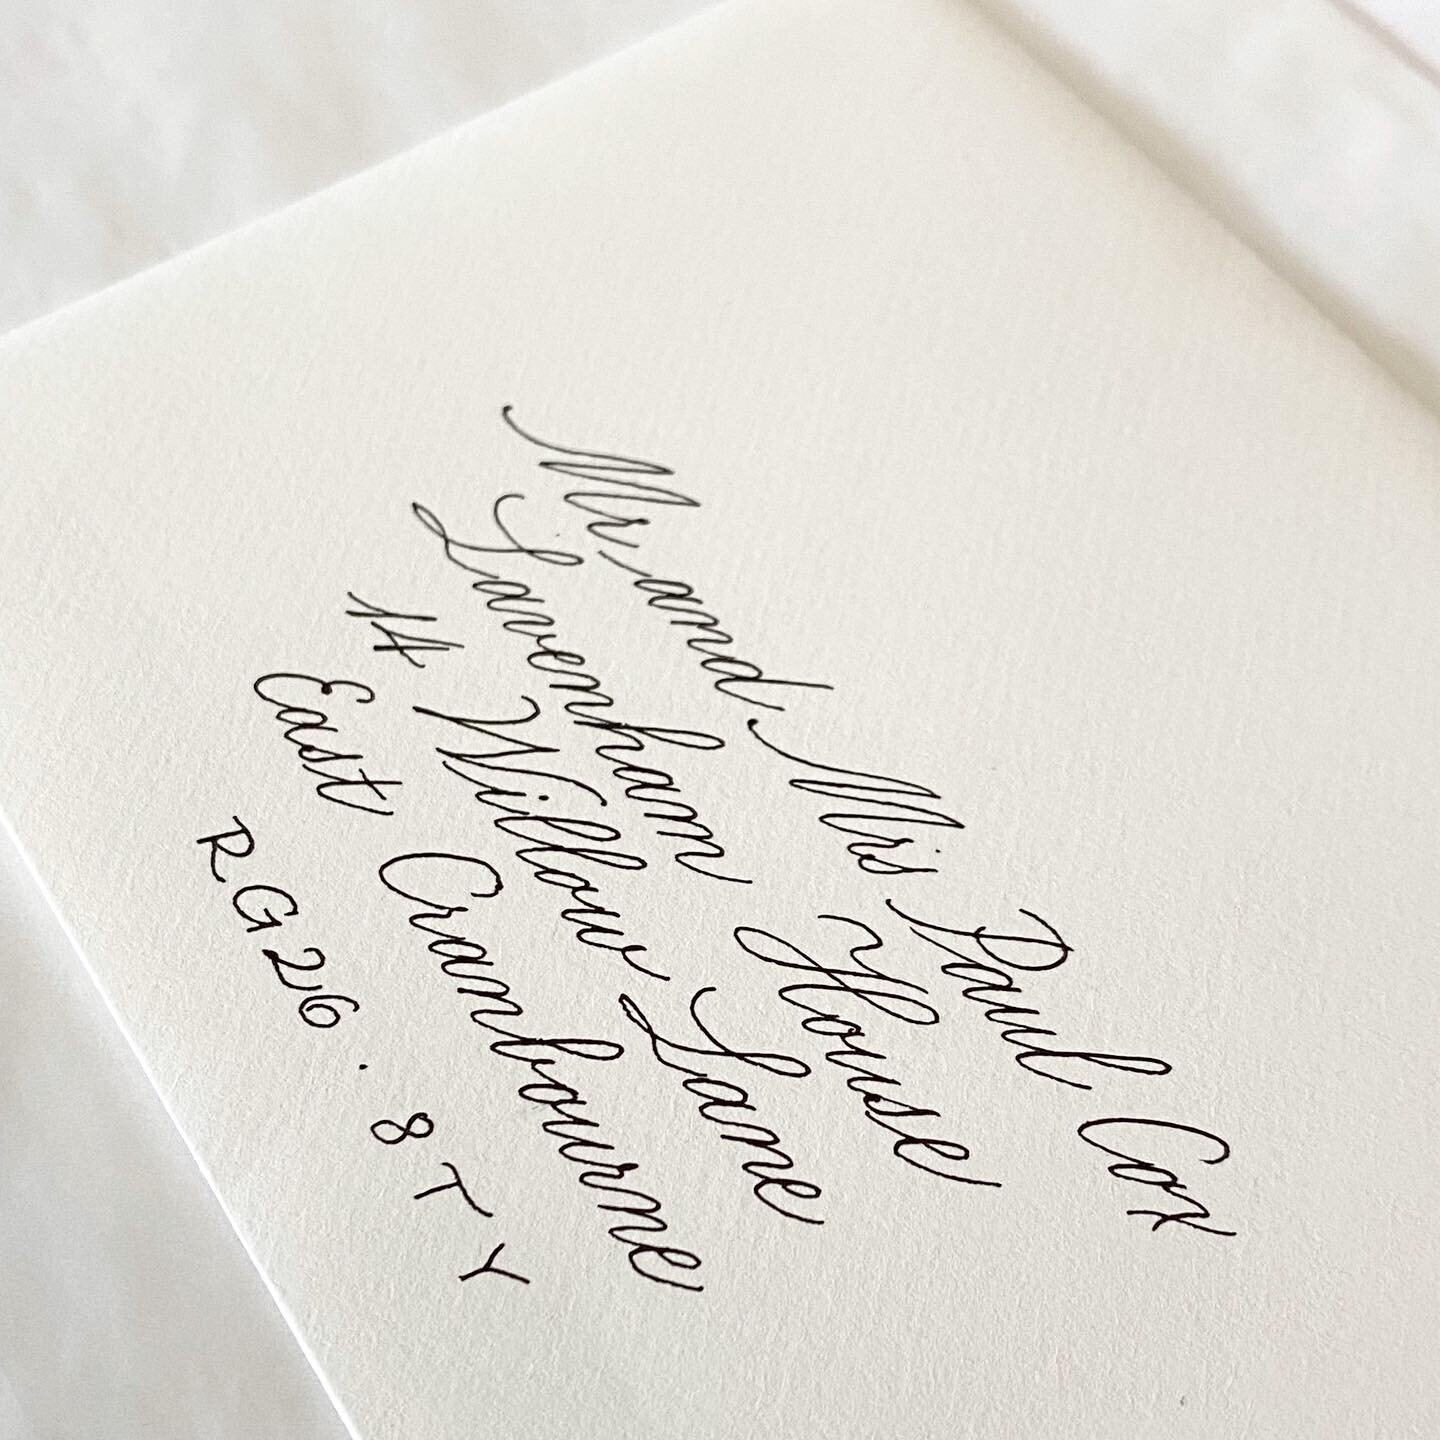 Mr and Mrs Paul Cox
Lavenham House
14 Willow Lane
East Cranbourne
RG26 . 8TY